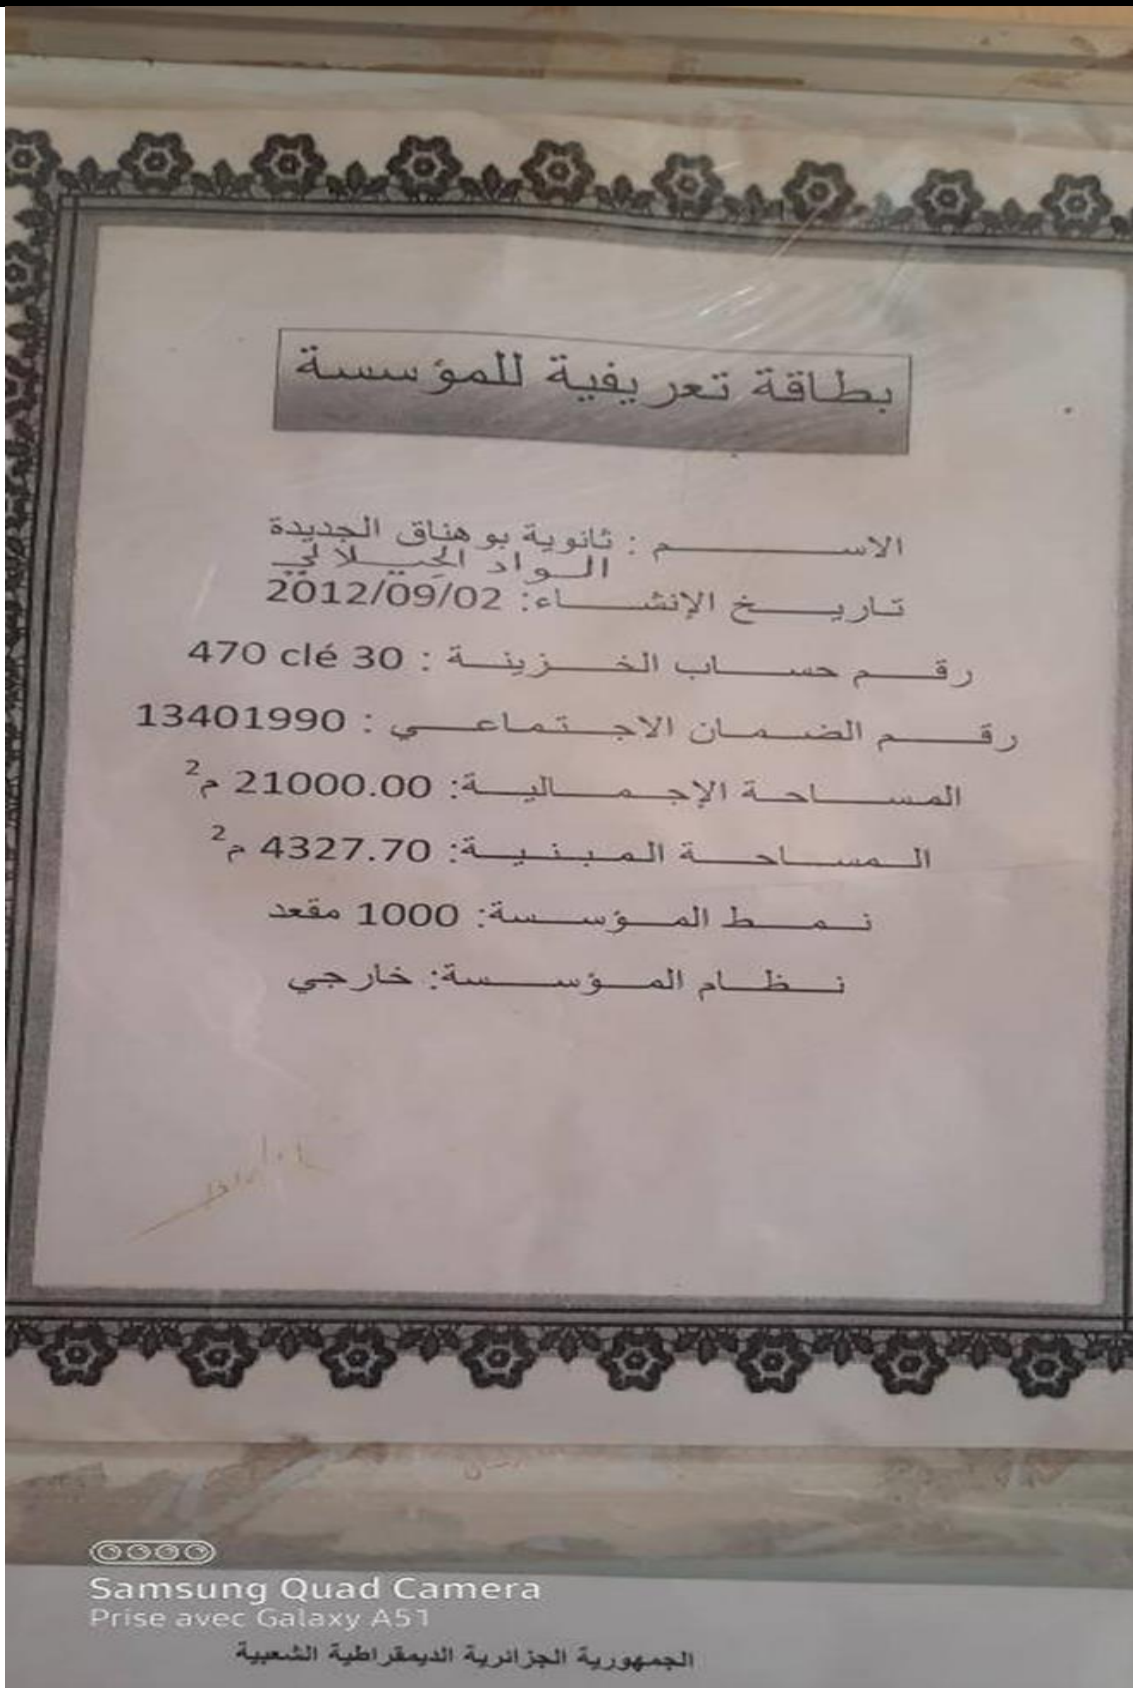 بطاقة تعريفية للمؤسسة
الاســـــــم : ثانوية بوهناق الجديدة
الـــواد الجيـــلالي
تـاريـــخ الإنشـــاء: 2012/09/02
رقــم حســـاب الخـــزينــة : 470 clé 30
رقـــم الضمـــان الاجـــتمـاعـــي : 13401990
المســـاحـة الإجـمـــاليـــة: 21000.00 م²
الـــمســـاحـــة المـبـنـيـــة: 4327.70 م²
نـمـــط المـــؤســـسة: 1000 مقعد
نـــظـــام المـــؤســـسة: خارجي
Samsung Quad Camera
Prise avec Galaxy A51
الجمهورية الجزائرية الديمقراطية الشعبية